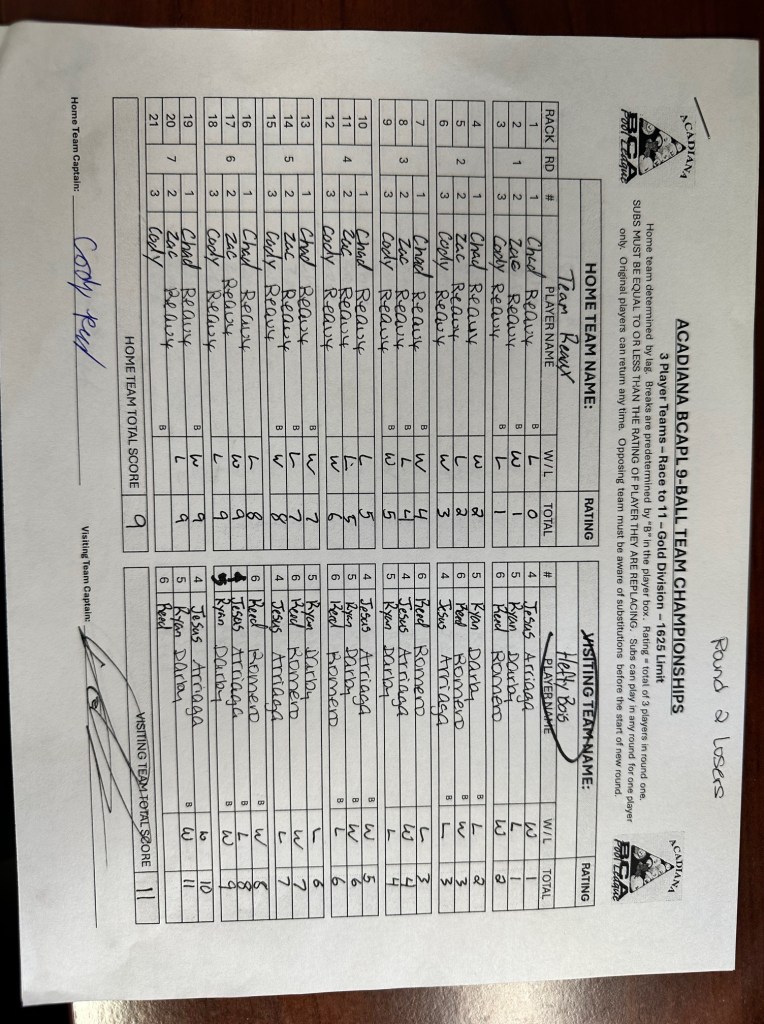 Round 2 Losers
ACADIANA BCA Pool League
ACADIANA BCAPL 9-BALL TEAM CHAMPIONSHIPS
ACADIANA BCA Pool League
3 Player Teams – Race to 11 – Gold Division – 1625 Limit
Home team determined by lag. Breaks are predetermined by "B" in the player box. Rating = total of 3 players in round one.
SUBS MUST BE EQUAL TO OR LESS THAN THE RATING OF PLAYER THEY ARE REPLACING. Subs can play in any round for one player
only. Original players can return any time. Opposing team must be aware of substitutions before the start of new round.
HOME TEAM NAME: RATING VISITING TEAM NAME: RATING
Team Reaux Hefty Bois
RACK RD # PLAYER NAME W/L TOTAL # PLAYER NAME W/L TOTAL
1 1 Chad Reaux B L 0 4 Jesus Arriaga W 1
2 1 2 Zac Reaux B W 1 5 Ryan Darby L 1
3 3 Cody Reaux B L 1 6 Reed Romero W 2
4 1 Chad Reaux W 2 5 Ryan Darby B L 2
5 2 2 Zac Reaux L 2 6 Reed Romero B W 3
6 3 Cody Reaux W 3 4 Jesus Arriaga B L 3
7 1 Chad Reaux B W 4 6 Reed Romero L 3
8 3 2 Zac Reaux B L 4 4 Jesus Arriaga W 4
9 3 Cody Reaux B W 5 5 Ryan Darby L 4
10 1 Chad Reaux L 5 4 Jesus Arriaga B W 5
11 4 2 Zac Reaux L 5 5 Ryan Darby B W 6
12 3 Cody Reaux W 6 6 Reed Romero B L 6
13 1 Chad Reaux B W 7 5 Ryan Darby L 6
14 5 2 Zac Reaux B L 7 6 Reed Romero W 7
15 3 Cody Reaux B W 8 4 Jesus Arriaga L 7
16 1 Chad Reaux L 8 6 Reed Romero B W 8
17 6 2 Zac Reaux W 9 4 Jesus Arriaga B L 8
18 3 Cody Reaux L 9 5 Ryan Darby B W 9
19 1 Chad Reaux B W 9 4 Jesus Arriaga W 10
20 7 2 Zac Reaux L 9 5 Ryan Darby B W 11
21 3 Cody B 6 Reed
HOME TEAM TOTAL SCORE 9 VISITING TEAM TOTAL SCORE 11
Home Team Captain: Visiting Team Captain: